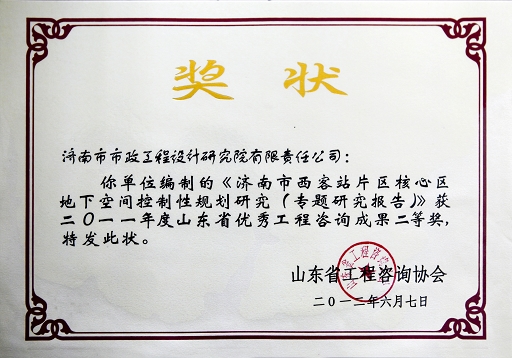 奖 状
济南市市政工程设计研究院有限责任公司：
你单位编制的《济南市西客站片区核心区
地下空间控制性规划研究（专题研究报告）》获
二〇一一年度山东省优秀工程咨询成果二等奖，
特发此状。
山东省工程咨询协会
二〇一二年六月七日